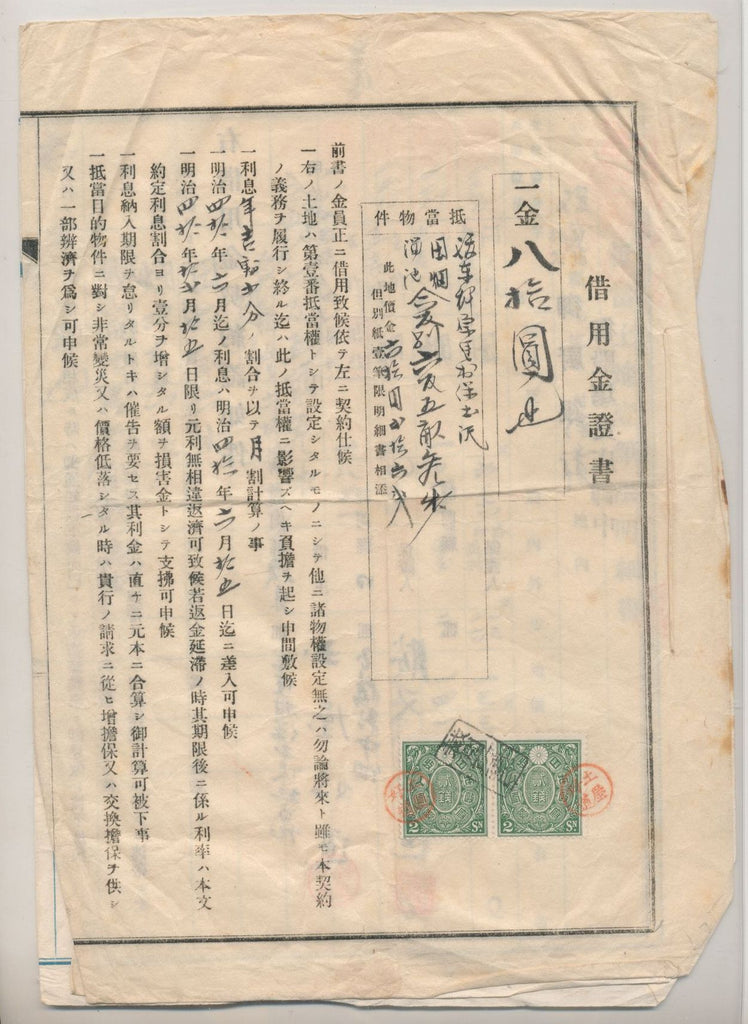 借用金證書
一金八拾圓也
抵當物件
田畑
溜池
此地價金
但別紙壹筆限明細書相添
前書ノ金員正ニ借用致候依テ左ニ契約仕候
一右ノ土地ハ第壹番抵當權トシテ設定シタルモノニシテ他ニ諸物權設定無之ハ勿論將來ト雖モ本契約
ノ義務ヲ履行シ終ル迄ハ此ノ抵當權ニ影響スヘキ負擔ヲ起シ申間敷候
一利息年 分ノ割合ヲ以テ月割計算ノ事
一明治四拾年六月迄ノ利息ハ明治四拾年六月拾五日迄ニ差入可申候
一明治四拾年 月拾五日限リ元利無相違返濟可致候若返金延滯ノ時其期限後ニ係ル利率ハ本文
約定利息割合ヨリ壹分ヲ增シタル額ヲ損害金トシテ支拂可申候
一利息納入期限ヲ怠リタルトキハ催告ヲ要セス其利金ハ直チニ元本ニ合算シ御計算可被下事
一抵當目的物件ニ對シ非常變災又ハ價格低落シタル時ハ貴行ノ請求ニ從ヒ增擔保又ハ交換擔保ヲ供シ
又ハ一部辨濟ヲ爲シ可申候
2 SN
2 SN